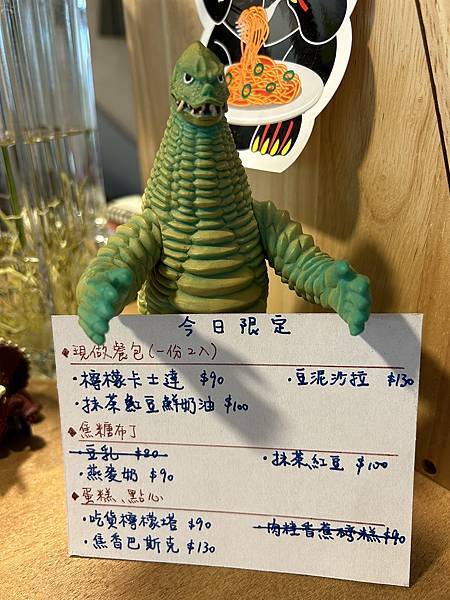 今日限定
◆現做餐包(一份2入)
・檸檬卡士達 $90 ・豆泥沙拉 $130
・抹茶紅豆鮮奶油 $100
◆焦糖布丁
・豆乳 $80 ・抹茶紅豆 $100
・燕麥奶 $90
◆蛋糕、點心
・吃貨檸檬塔 $90 ・肉桂香蕉磅糕 $90
・焦香巴斯克 $130